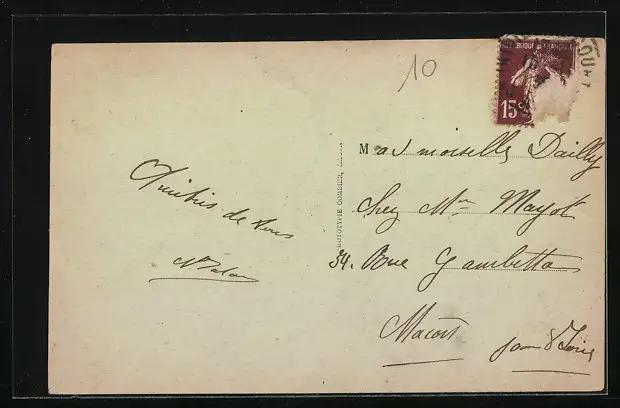 10
RÉPUBLIQUE FRANÇAISE
15c
Amitiés de tous
PHOTOTYPIE COMBIER, MACON
Mad moiselle Dailly
chez Mme Mayot
34. Rue Gambetta